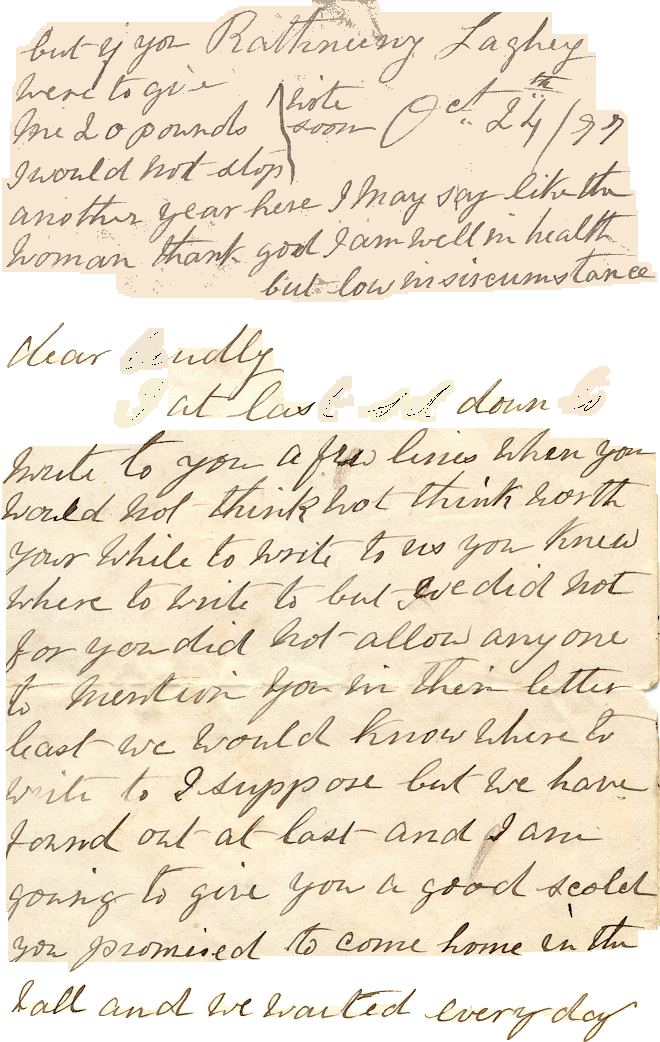 but if you Rathneeny Laghey
were to give
me 20 pounds write soon Oct 24th/97
I would not stop
another year here I may say like the
woman thank god I am well in health
but low in sircumstance
dear
I at last set down to
write to you a few lines when you
would not think not think worth
your while to write to us you knew
where to write to but we did not
for you did not allow anyone
to mention you in their letter
least we would know where to
write to I suppose but we have
found out at last and I am
going to give you a good scold
you promised to come home in the
fall and we waited every day